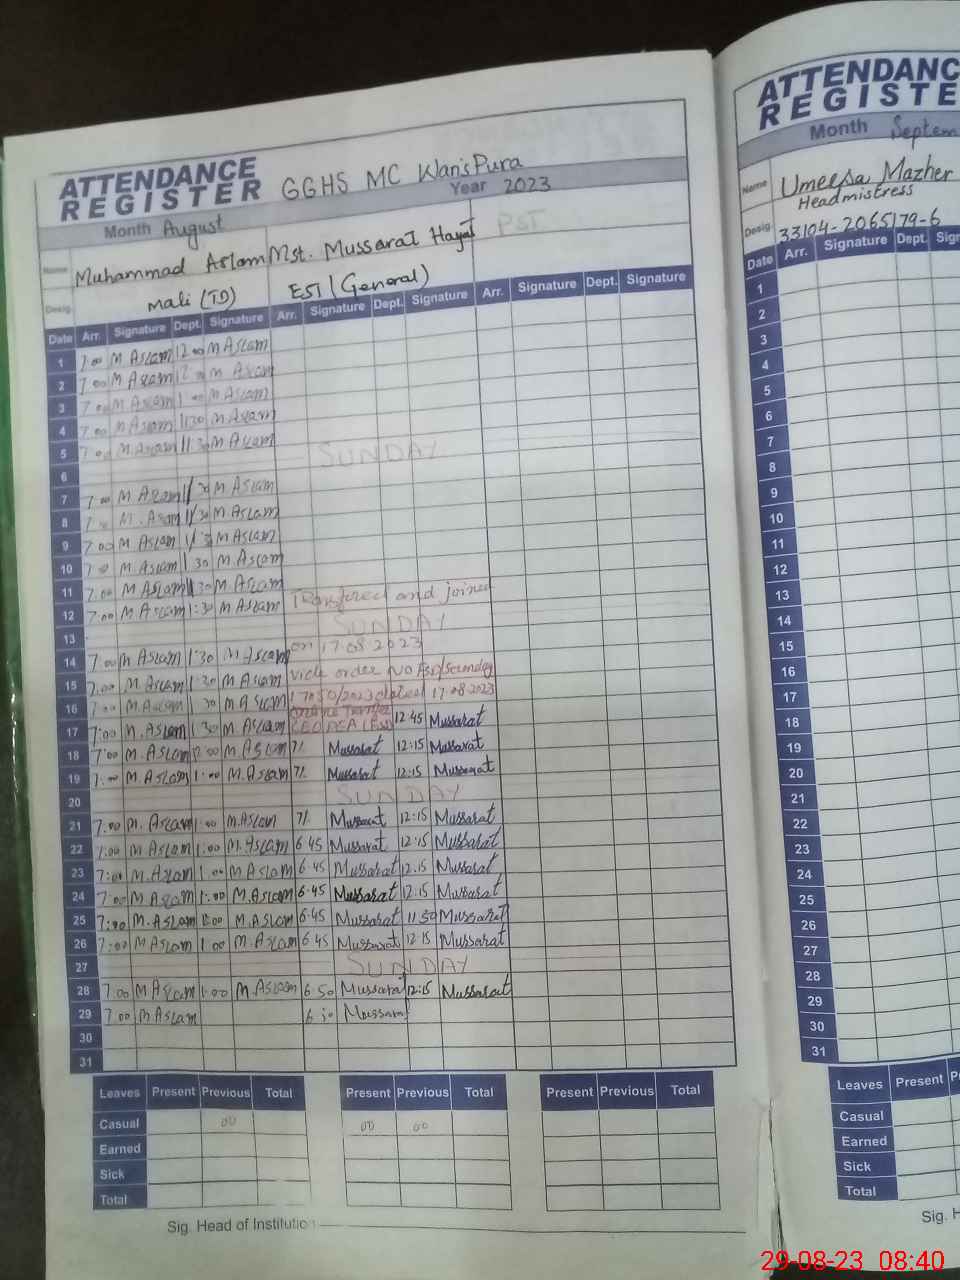 ATTENDANCE
REGISTER GGHS MC WarisPura
Month August Year 2023
Name Muhammad Aslam Mst. Mussarat Hayat PST
Desig. Mali (TD) EST (General)
Date Arr. Signature Dept. Signature Arr. Signature Dept. Signature Arr. Signature Dept. Signature
1 7:00 M Aslam 12 00 M Aslam
2 7:00 M Aslam M Aslam
3 7:00 M Aslam M Aslam
4 7:00 M Aslam 11:30 M Aslam
5 7:00 M.Aslam 11:30 M Aslam SUNDAY
6
7 7:00 M Aslam M Aslam
8 M. Aslam M.Aslam
9 7:00 M Aslam M Aslam
10 M Aslam 1 30 M.Aslam
11 7:00 M Aslam 1:30 M.Aslam
12 7:00 M Aslam 1:30 M Aslam Transfered and joined
13 SUNDAY
14 7:00 M Aslam 1:30 M.Aslam on 17.08.2023
15 7:00 M.Aslam 1:30 M.Aslam vide order No
16 7:00 M.Aslam 1 30 M Aslam dated 17.08.2023
17 7:00 M.Aslam 1 30 M Aslam CEO DEA 12 45 Mussarat
18 7:00 M.Aslam M Aslam 7/. Mussarat 12:15 Mussarat
19 7:00 M Aslam 1:00 M.Aslam 7/. Mussarat 12:15 Mussarat
20 SUNDAY
21 7:00 M. Aslam 1:00 M.Aslam 7/. Mussarat 12:15 Mussarat
22 7:00 M Aslam 1:00 M.Aslam 6 45 Mussarat 12:15 Mussarat
23 7:00 M.Aslam 1:00 M Aslam 6.45 Mussarat 12.15 Mussarat
24 7:00 M.Aslam 1:00 M.Aslam 6.45 Mussarat 12:15 Mussarat
25 7:00 M.Aslam M.Aslam 6.45 Mussarat 11 50 Mussarat
26 7:00 M Aslam 1 00 M.Aslam 6 45 Mussarat 12 15 Mussarat
27 SUNDAY
28 7.00 M Aslam 1:00 M.Aslam 6.50 Mussarat 12:15 Mussarat
29 7.00 M Aslam Mussarat
30
31
Leaves Present Previous Total Present Previous Total Present Previous Total
Casual 00 00 00
Earned
Sick
Total
Sig. Head of Institution
ATTENDANC
REGISTE
Month Septem
Name Umeesa Mazher
Headmistress
Desig. 33104-2065179-6
Date Arr. Signature Dept. Sig
1
2
3
4
5
6
7
8
9
10
11
12
13
14
15
16
17
18
19
20
21
22
23
24
25
26
27
28
29
30
31
Leaves Present P
Casual
Earned
Sick
Total
Sig. H
29-08-23 08:40